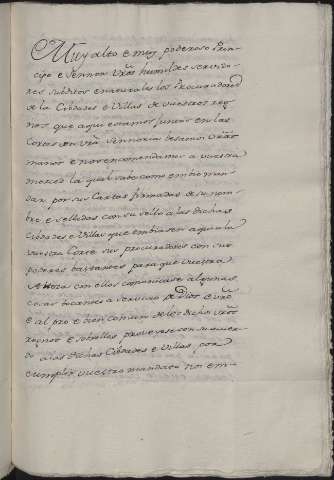 Muy alto e muy poderoso Prin-
cipe e Sennor vros humildes servido-
res subditos e naturales los Procuradores
de las Cibdades e Villas de vuestros reg-
nos, que aqui estamos juntos en las
Cortes de vra Sennoria besamos vras
manos e nos encomendamos a vuestra
merced la qual sabe como embió man-
dar por sus Cartas firmadas de su nom-
bre e selladas con su sello a las dichas
Cibdades e Villas que embiasen aqui a la
vuestra Corte sus procuradores con sus
poderes bastantes para que vuestra
Alteza con ellos comunicase algunas
cosas tocantes a servicio de Dios e vro
e al pro e bien comun de los dichos vros
regnos e sobrellas proveyese con su acuer-
do e las dichas Cibdades e Villas, por
cumplir vuestro mandado nos em-